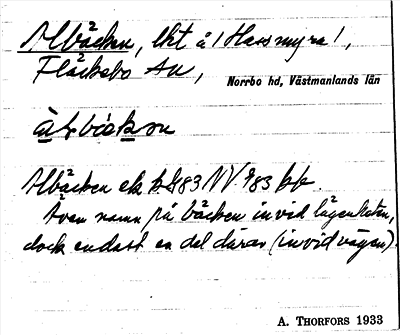 Albäcken, lht å 1 Hassmyra 1,
Fläckebo sn,
Norrbo hd, Västmanlands län
Albäcken ek bl 83 NV 983 bb.
Även namn på bäcken invid lägenheten,
dock endast en del därav (invid vägen).
A. THORFORS 1933